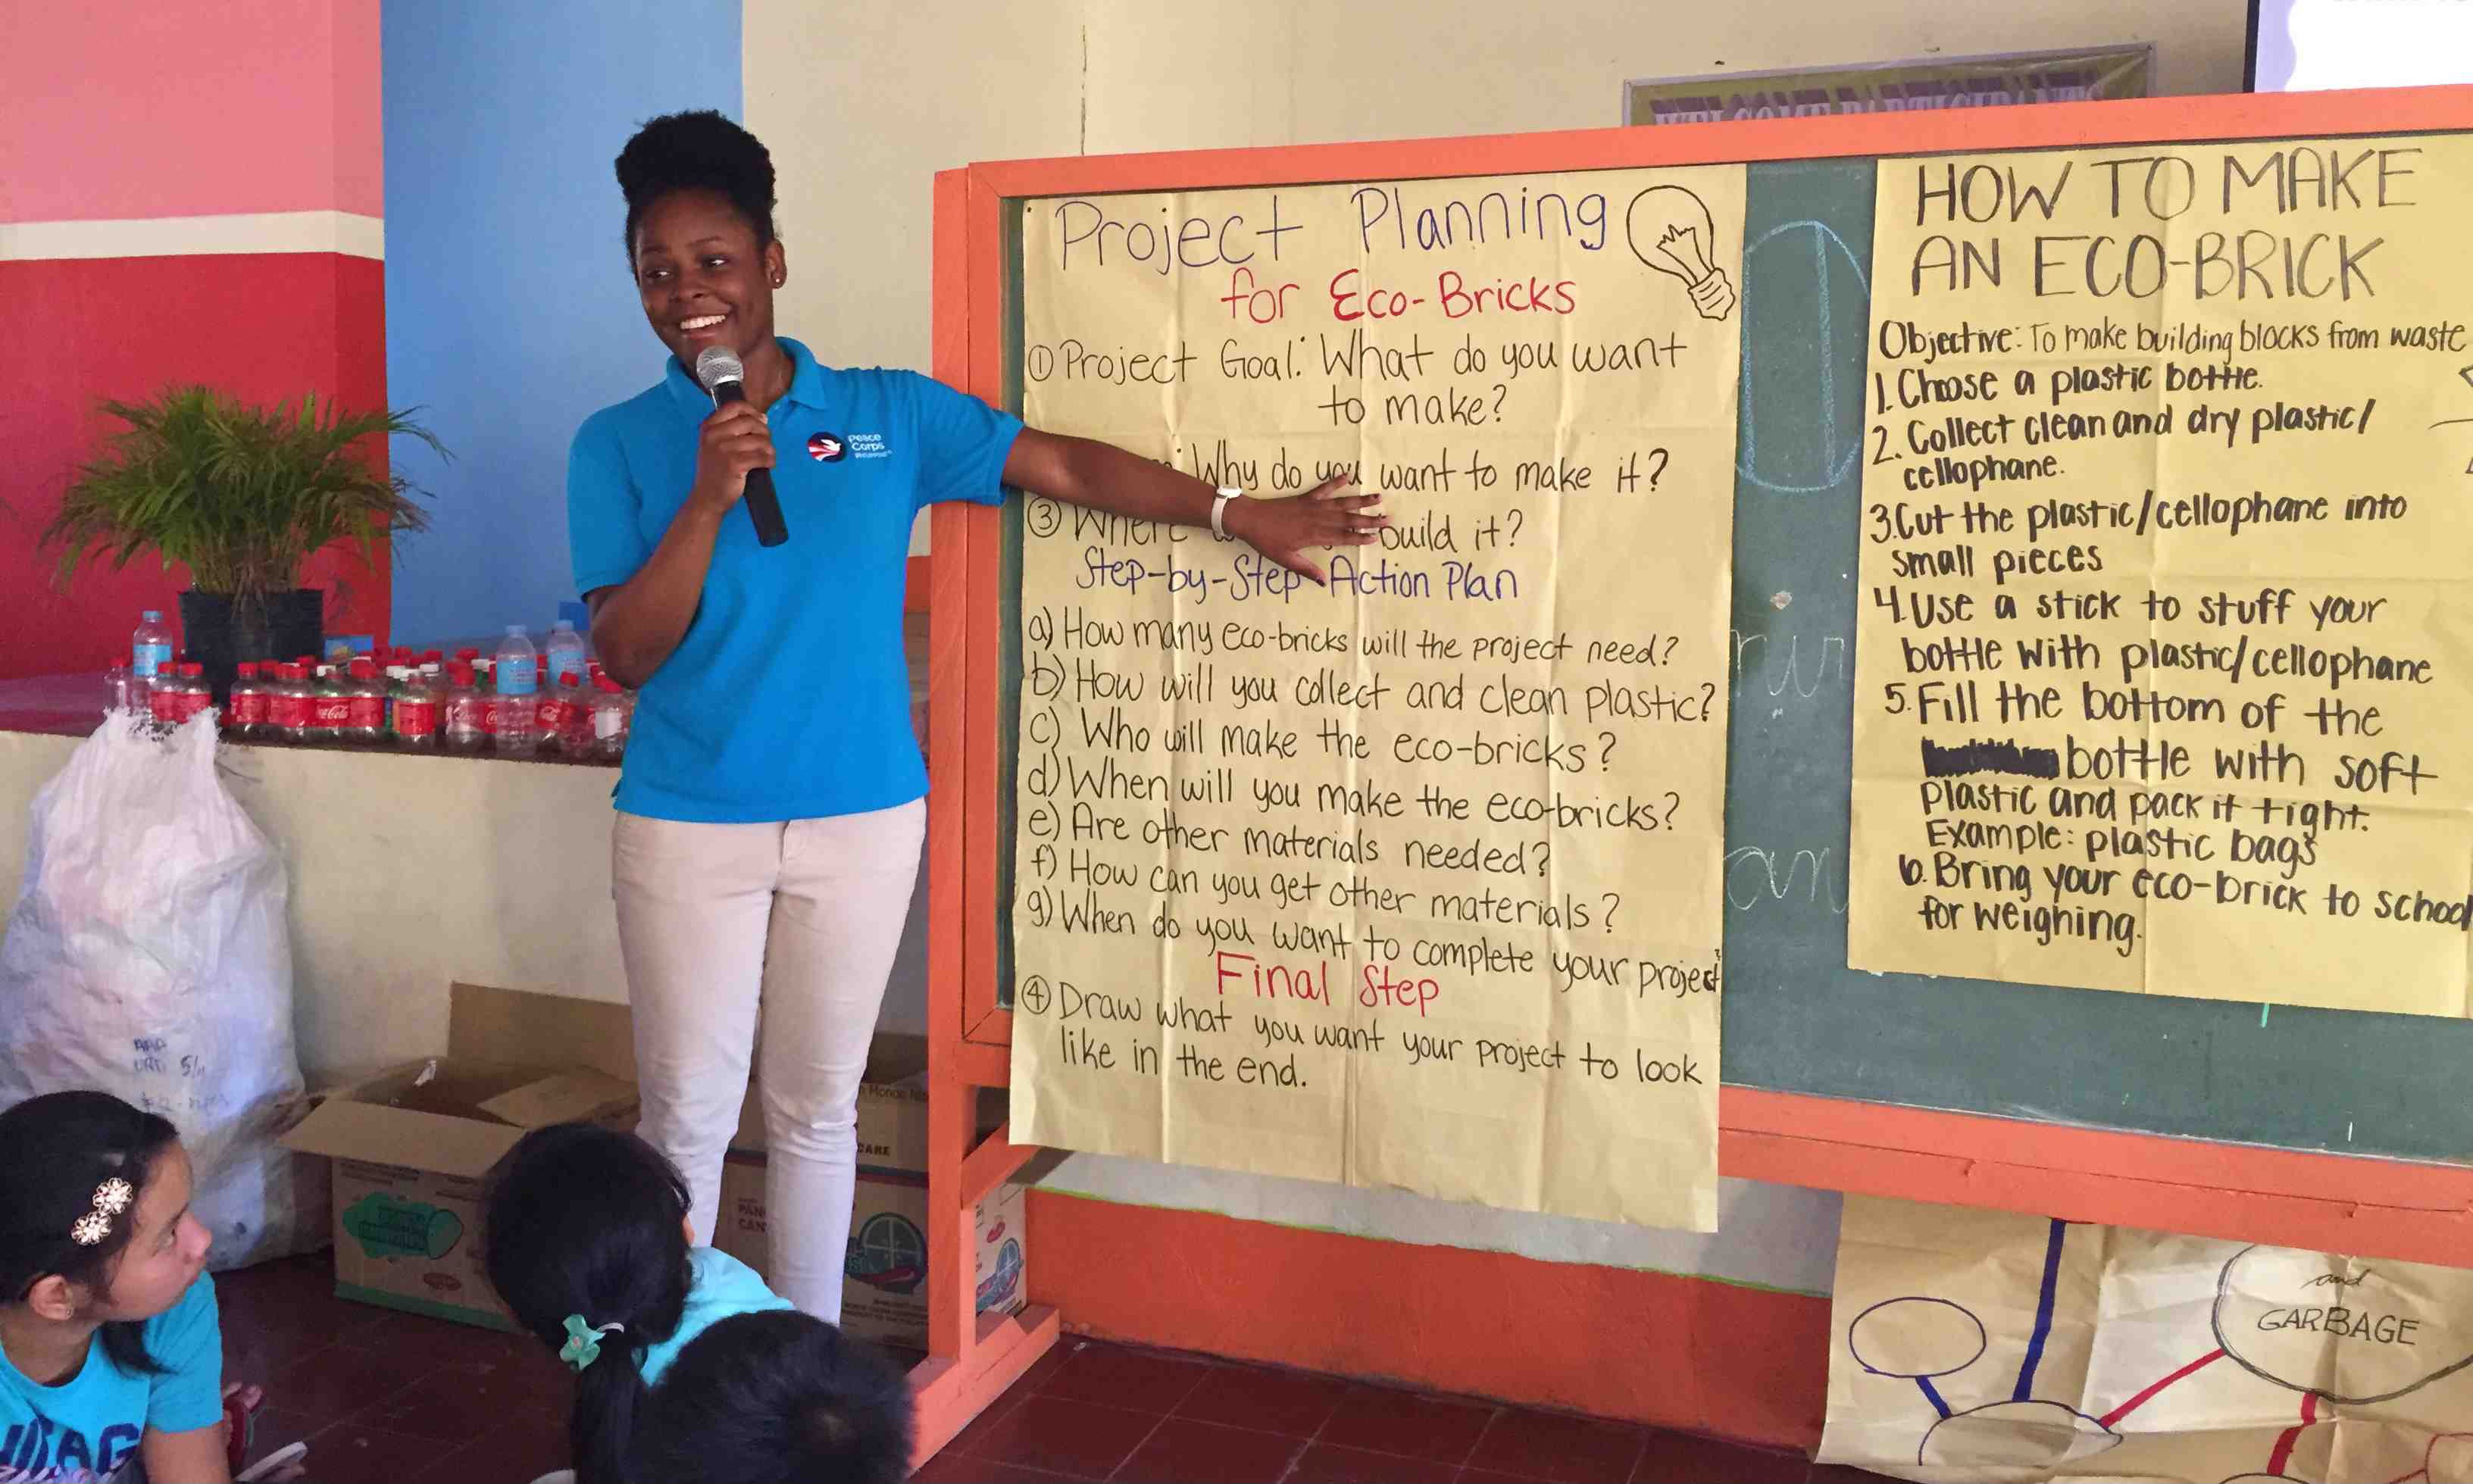 WELCOME PARTICIPANTS
Project Planning
for Eco-Bricks
① Project Goal: What do you want
to make?
: Why do you want to make it?
③ Where build it?
Step-by-Step Action Plan
a) How many eco-bricks will the project need?
b) How will you collect and clean plastic?
c) Who will make the eco-bricks?
d) When will you make the eco-bricks?
e) Are other materials needed?
f) How can you get other materials?
g) When do you want to complete your project?
Final Step
④ Draw what you want your project to look
like in the end.
HOW TO MAKE
AN ECO-BRICK
Objective: To make building blocks from waste
1. Choose a plastic bottle.
2. Collect clean and dry plastic/
cellophane.
3. Cut the plastic/cellophane into
small pieces
4. Use a stick to stuff your
bottle with plastic/cellophane
5. Fill the bottom of the
bottle with soft
plastic and pack it tight.
Example: plastic bags
6. Bring your eco-brick to school
for weighing.
and
GARBAGE
Peace
Corps
Coca-Cola
CARE